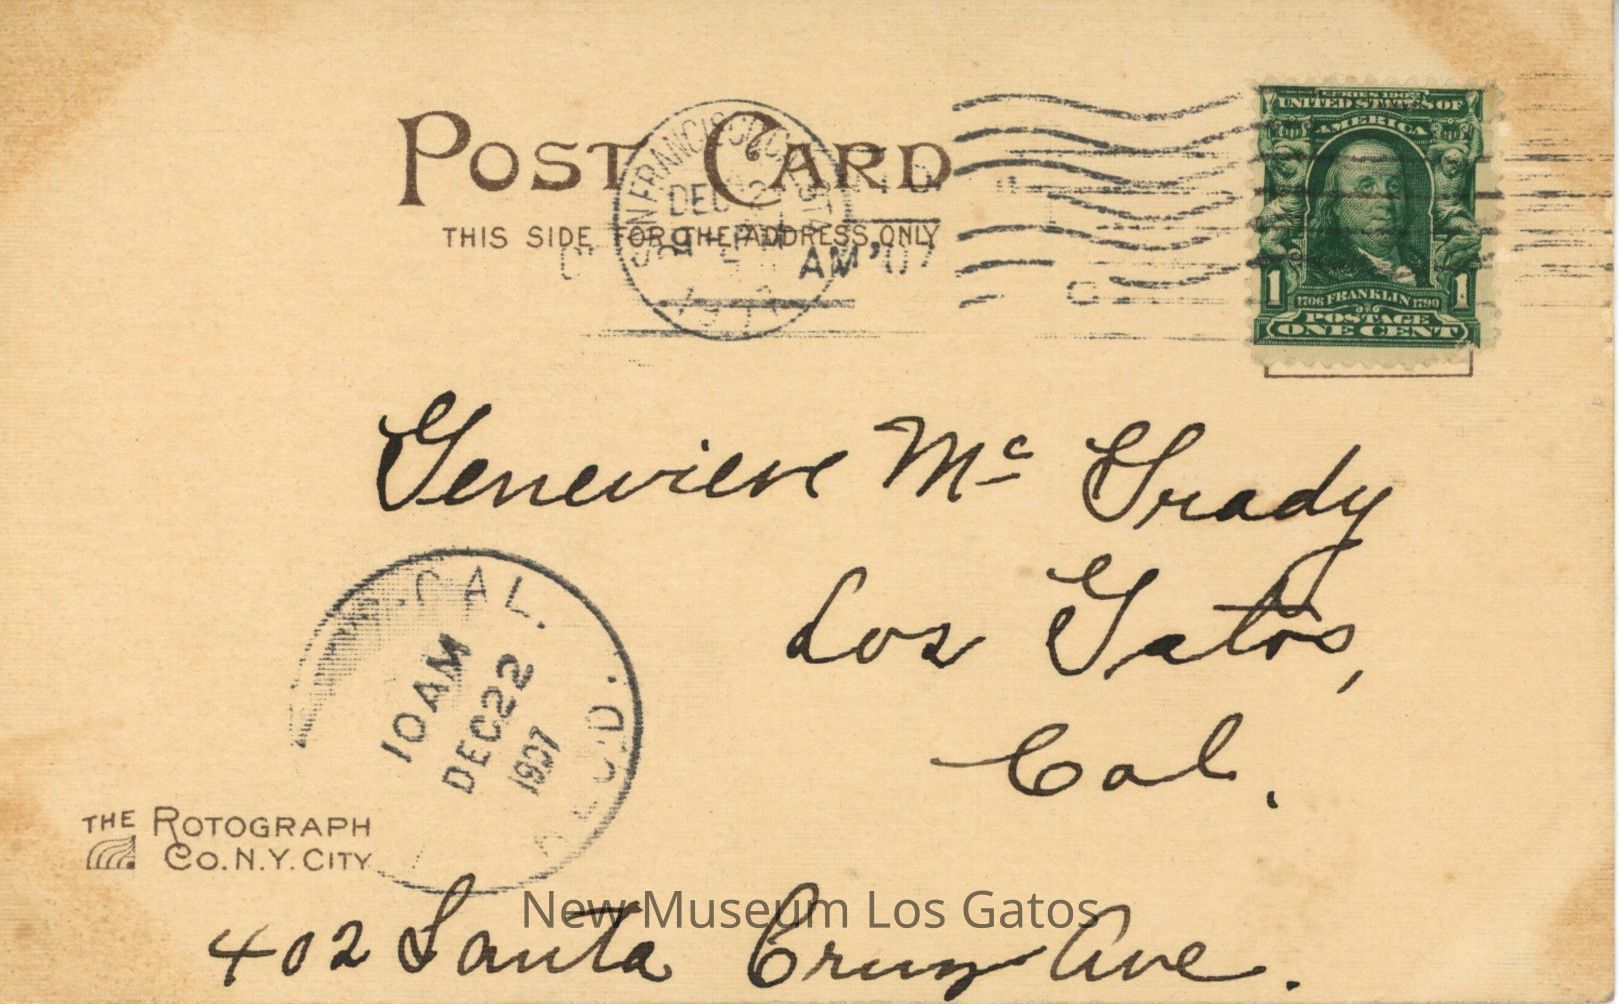 POST CARD
THIS SIDE FOR THE ADDRESS ONLY
SAN FRANCISCO, CAL. STA.
DEC
1907
AM '07
SERIES 1902
UNITED STATES OF
AMERICA
1 1706 FRANKLIN 1790 1
POSTAGE
ONE CENT
Genevieve Mc Grady
Los Gatos,
Cal.
CAL.
10 AM
DEC 22
1907
REC'D.
THE ROTOGRAPH
CO. N.Y. CITY
New Museum Los Gatos
402 Santa Cruz Ave.